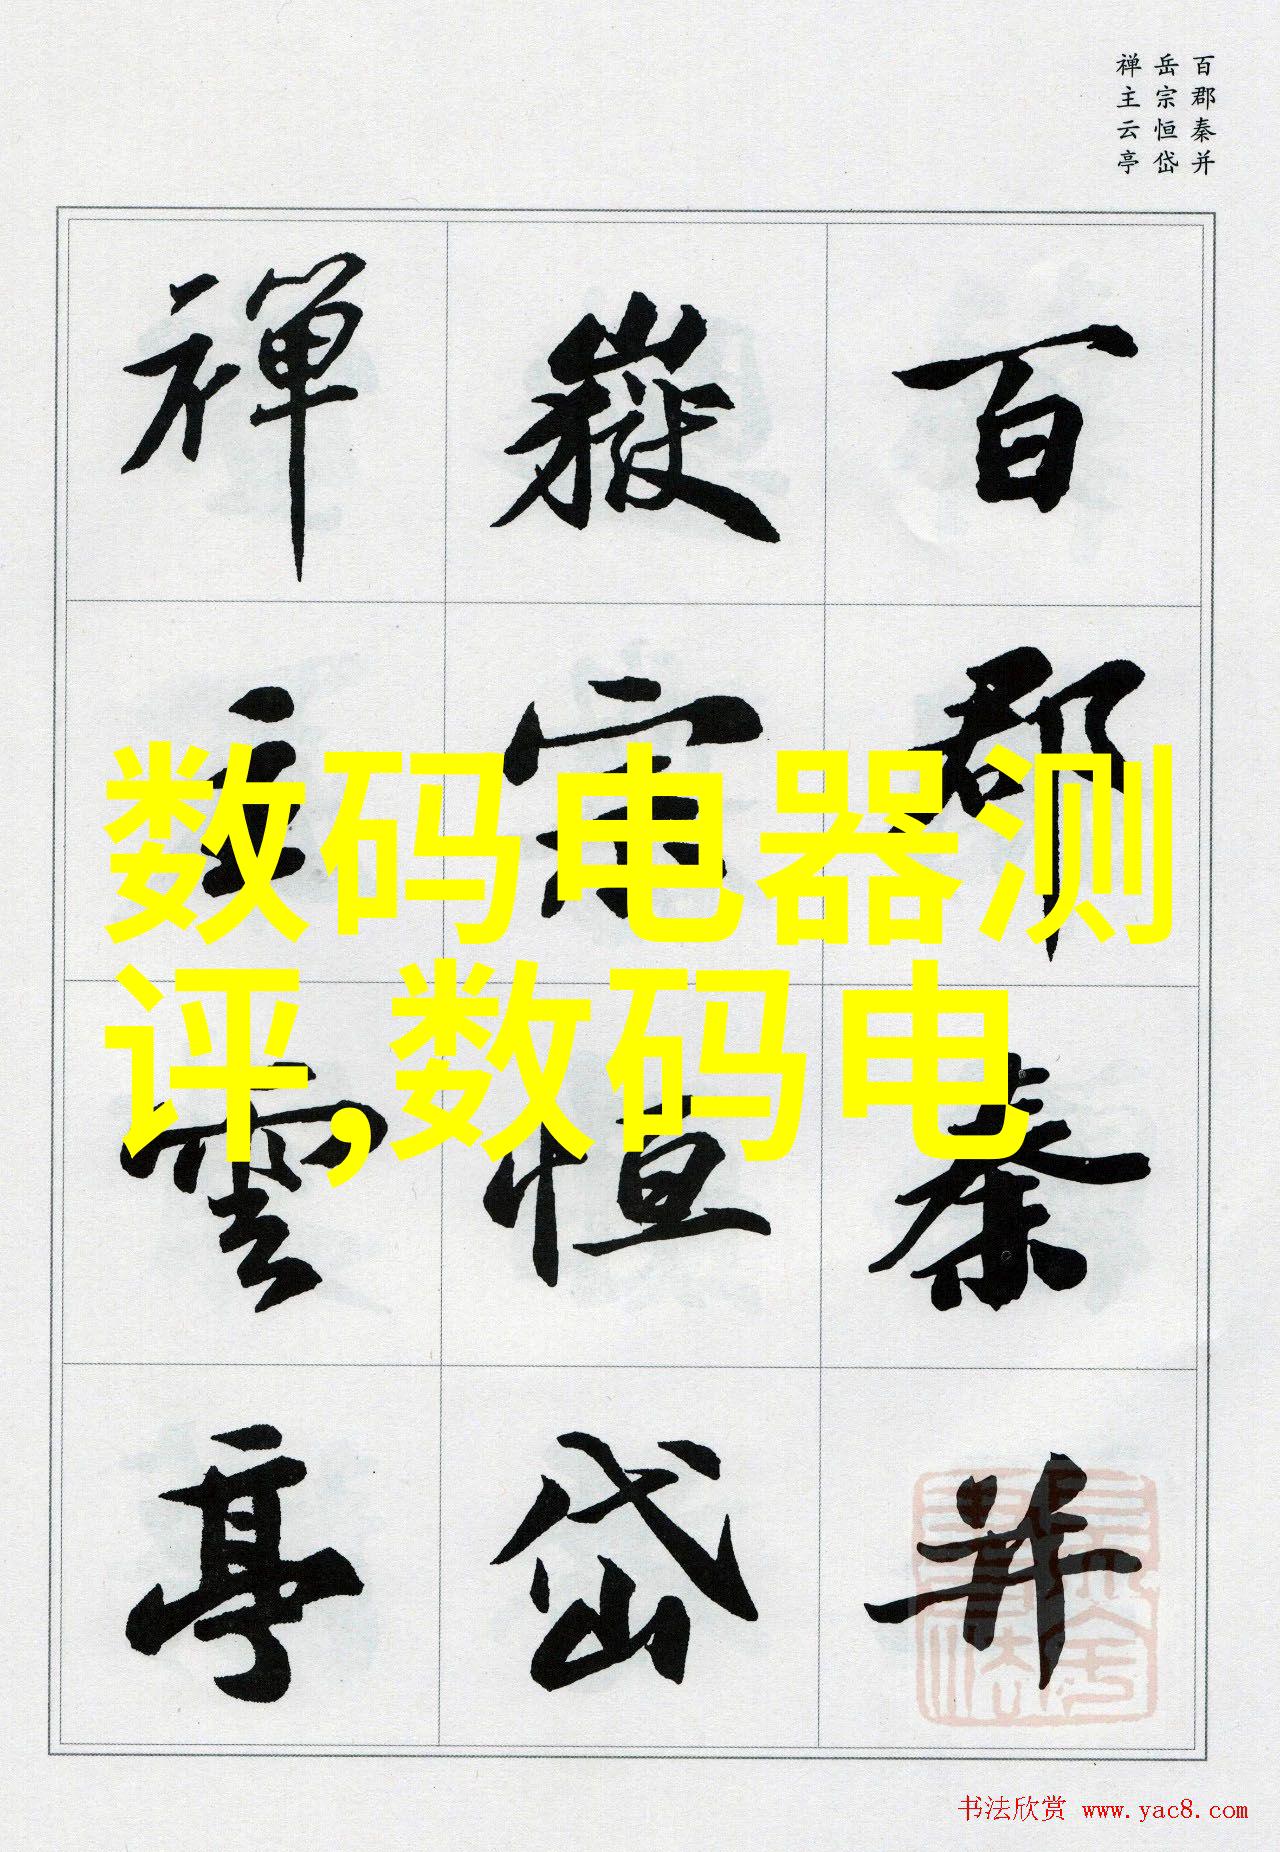 百郡秦并
岳宗恒岱
禅主云亭
百郡秦并
嶽宗恒岱
禅主雲亭
数码电器测
评,数码电
书法欣赏 www.yac8.com